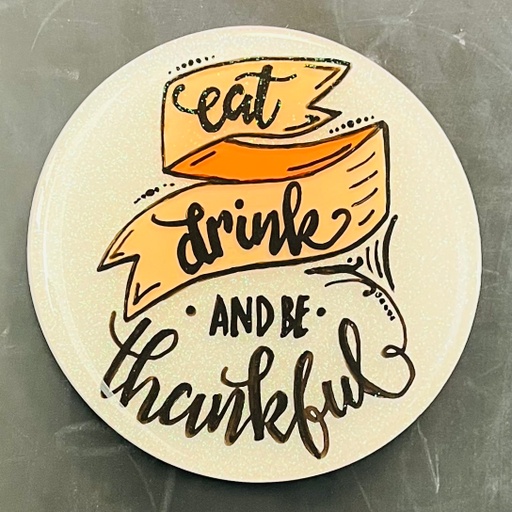 eat
drink
• AND BE •
thankful